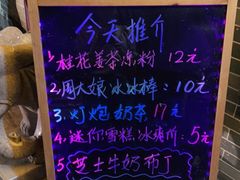 今天推介
1.桂花姜茶冻粉 12元
2.周大娘冰冰棒:10元
3.灯炮奶茶 17元
4.迷你雪糕冰爽阶:5元
5.芝士牛奶布丁